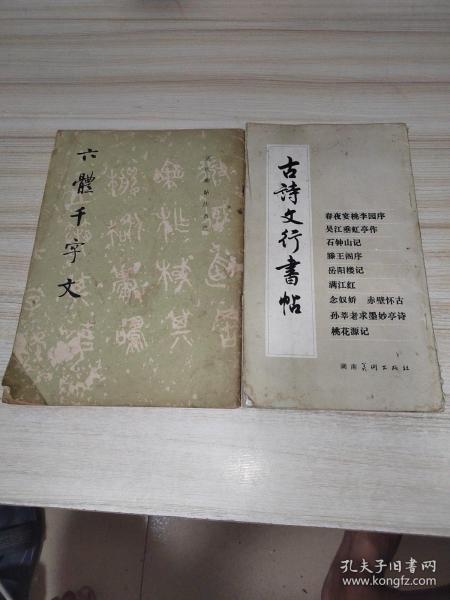 六體千字文
古詩文行書帖
春夜宴桃李园序
吴江垂虹亭作
石钟山记
滕王阁序
岳阳楼记
满江红
念奴娇　赤壁怀古
孙莘老求墨妙亭诗
桃花源记
湖南美术出版社
孔夫子旧书网
www.kongfz.com